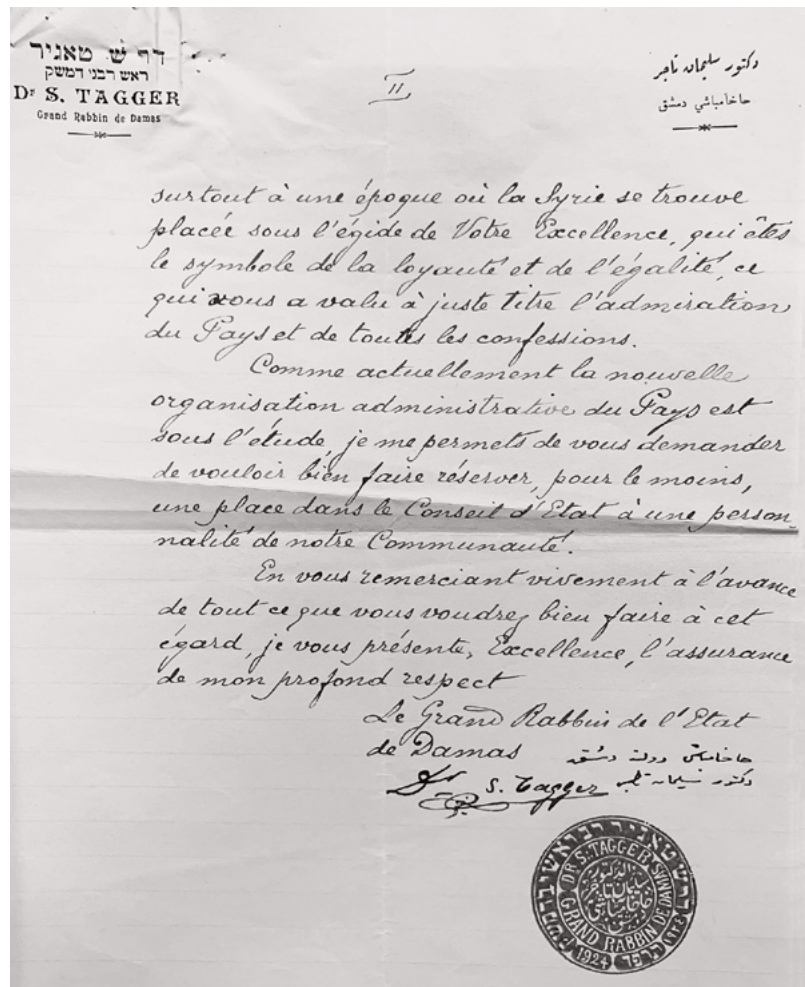 דר ש. טאגיר
ראש רבני דמשק
Dr S. TAGGER
Grand Rabbin de Damas
II
دكتور سليمان تاجر
حاخامباشي دمشق
surtout à une époque où la Syrie se trouve
placée sous l'égide de Votre Excellence, qui êtes
le symbole de la loyauté et de l'égalité, ce
qui vous a valu à juste titre l'admiration
du Pays et de toutes les confessions.
Comme actuellement la nouvelle
organisation administrative du Pays est
sous l'étude, je me permets de vous demander
de vouloir bien faire réserver, pour le moins,
une place dans le Conseil d'Etat à une person-
nalité de notre Communauté.
En vous remerciant vivement à l'avance
de tout ce que vous voudrez bien faire à cet
égard, je vous présente, Excellence, l'assurance
de mon profond respect
Le Grand Rabbin de l'Etat
de Damas
حاخامباشي دولة دمشق
Dr S. Tagger
دكتور سليمان تاجر
DR S. TAGGER
GRAND RABBIN DE DAMAS
1924